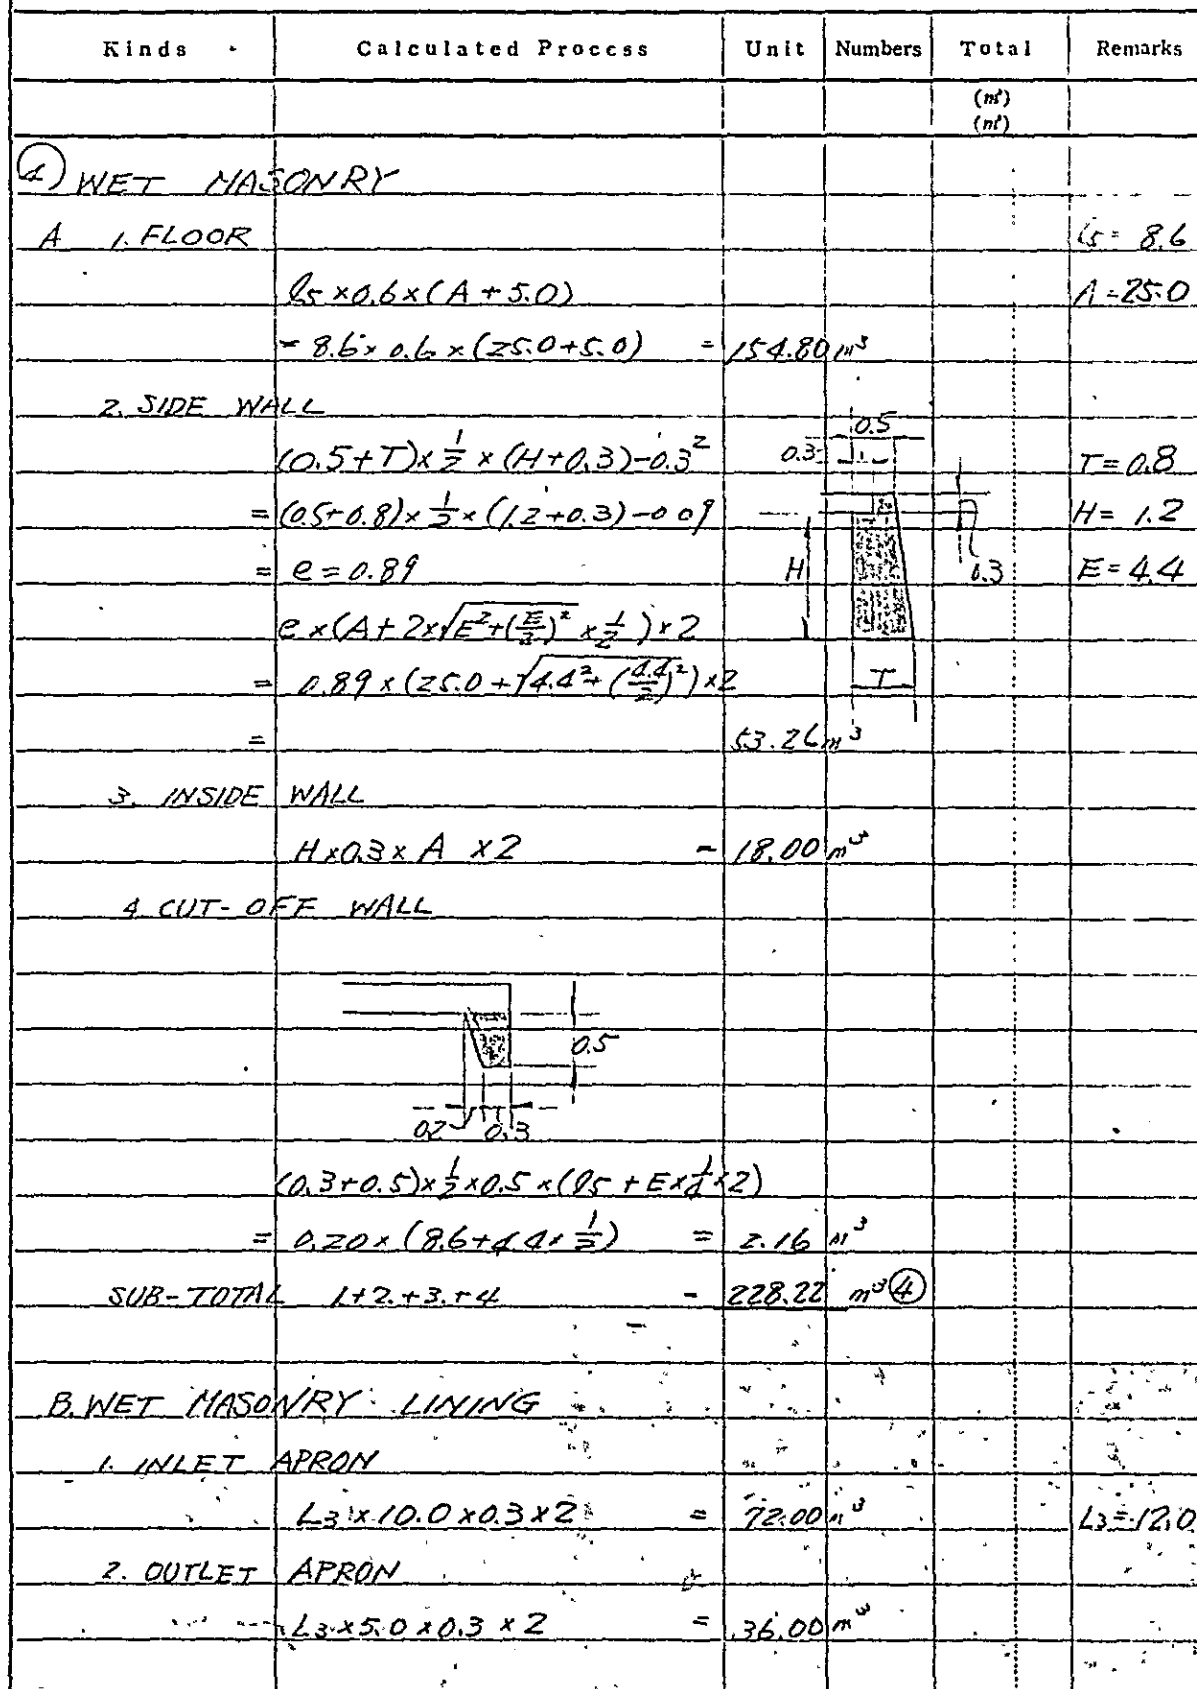 Kinds Calculated Process Unit Numbers Total Remarks
(m³)
(m³)
④ WET MASONRY
A 1. FLOOR l5 = 8.6
l5 × 0.6 × (A + 5.0) A = 25.0
= 8.6 × 0.6 × (25.0+5.0) = 154.80 m³
2. SIDE WALL
0.5
(0.5+T)×1/2×(H+0.3)-0.3² 0.3 T = 0.8
= (0.5+0.8)×1/2×(1.2+0.3)-0.09 H = 1.2
= e = 0.89 H 0.3 E = 4.4
e×(A+2×√(E²+(E/2)²)×1/2)×2
= 0.89×(25.0+√(4.4²+(4.4/2)²)×2 T
= 53.26 m³
3. INSIDE WALL
H×0.3×A ×2 = 18.00 m³
4. CUT-OFF WALL
0.5
0.2 0.3
(0.3+0.5)×1/2×0.5×(l5 + E×1/4×2)
= 0.20×(8.6+4.4×1/2) = 2.16 m³
SUB-TOTAL 1+2.+3.+4 = 228.22 m³ ④
B. WET MASONRY LINING
1. INLET APRON
L3×10.0×0.3×2 = 72.00 m³ L3 = 12.0
2. OUTLET APRON
L3×5.0×0.3×2 = 36.00 m³